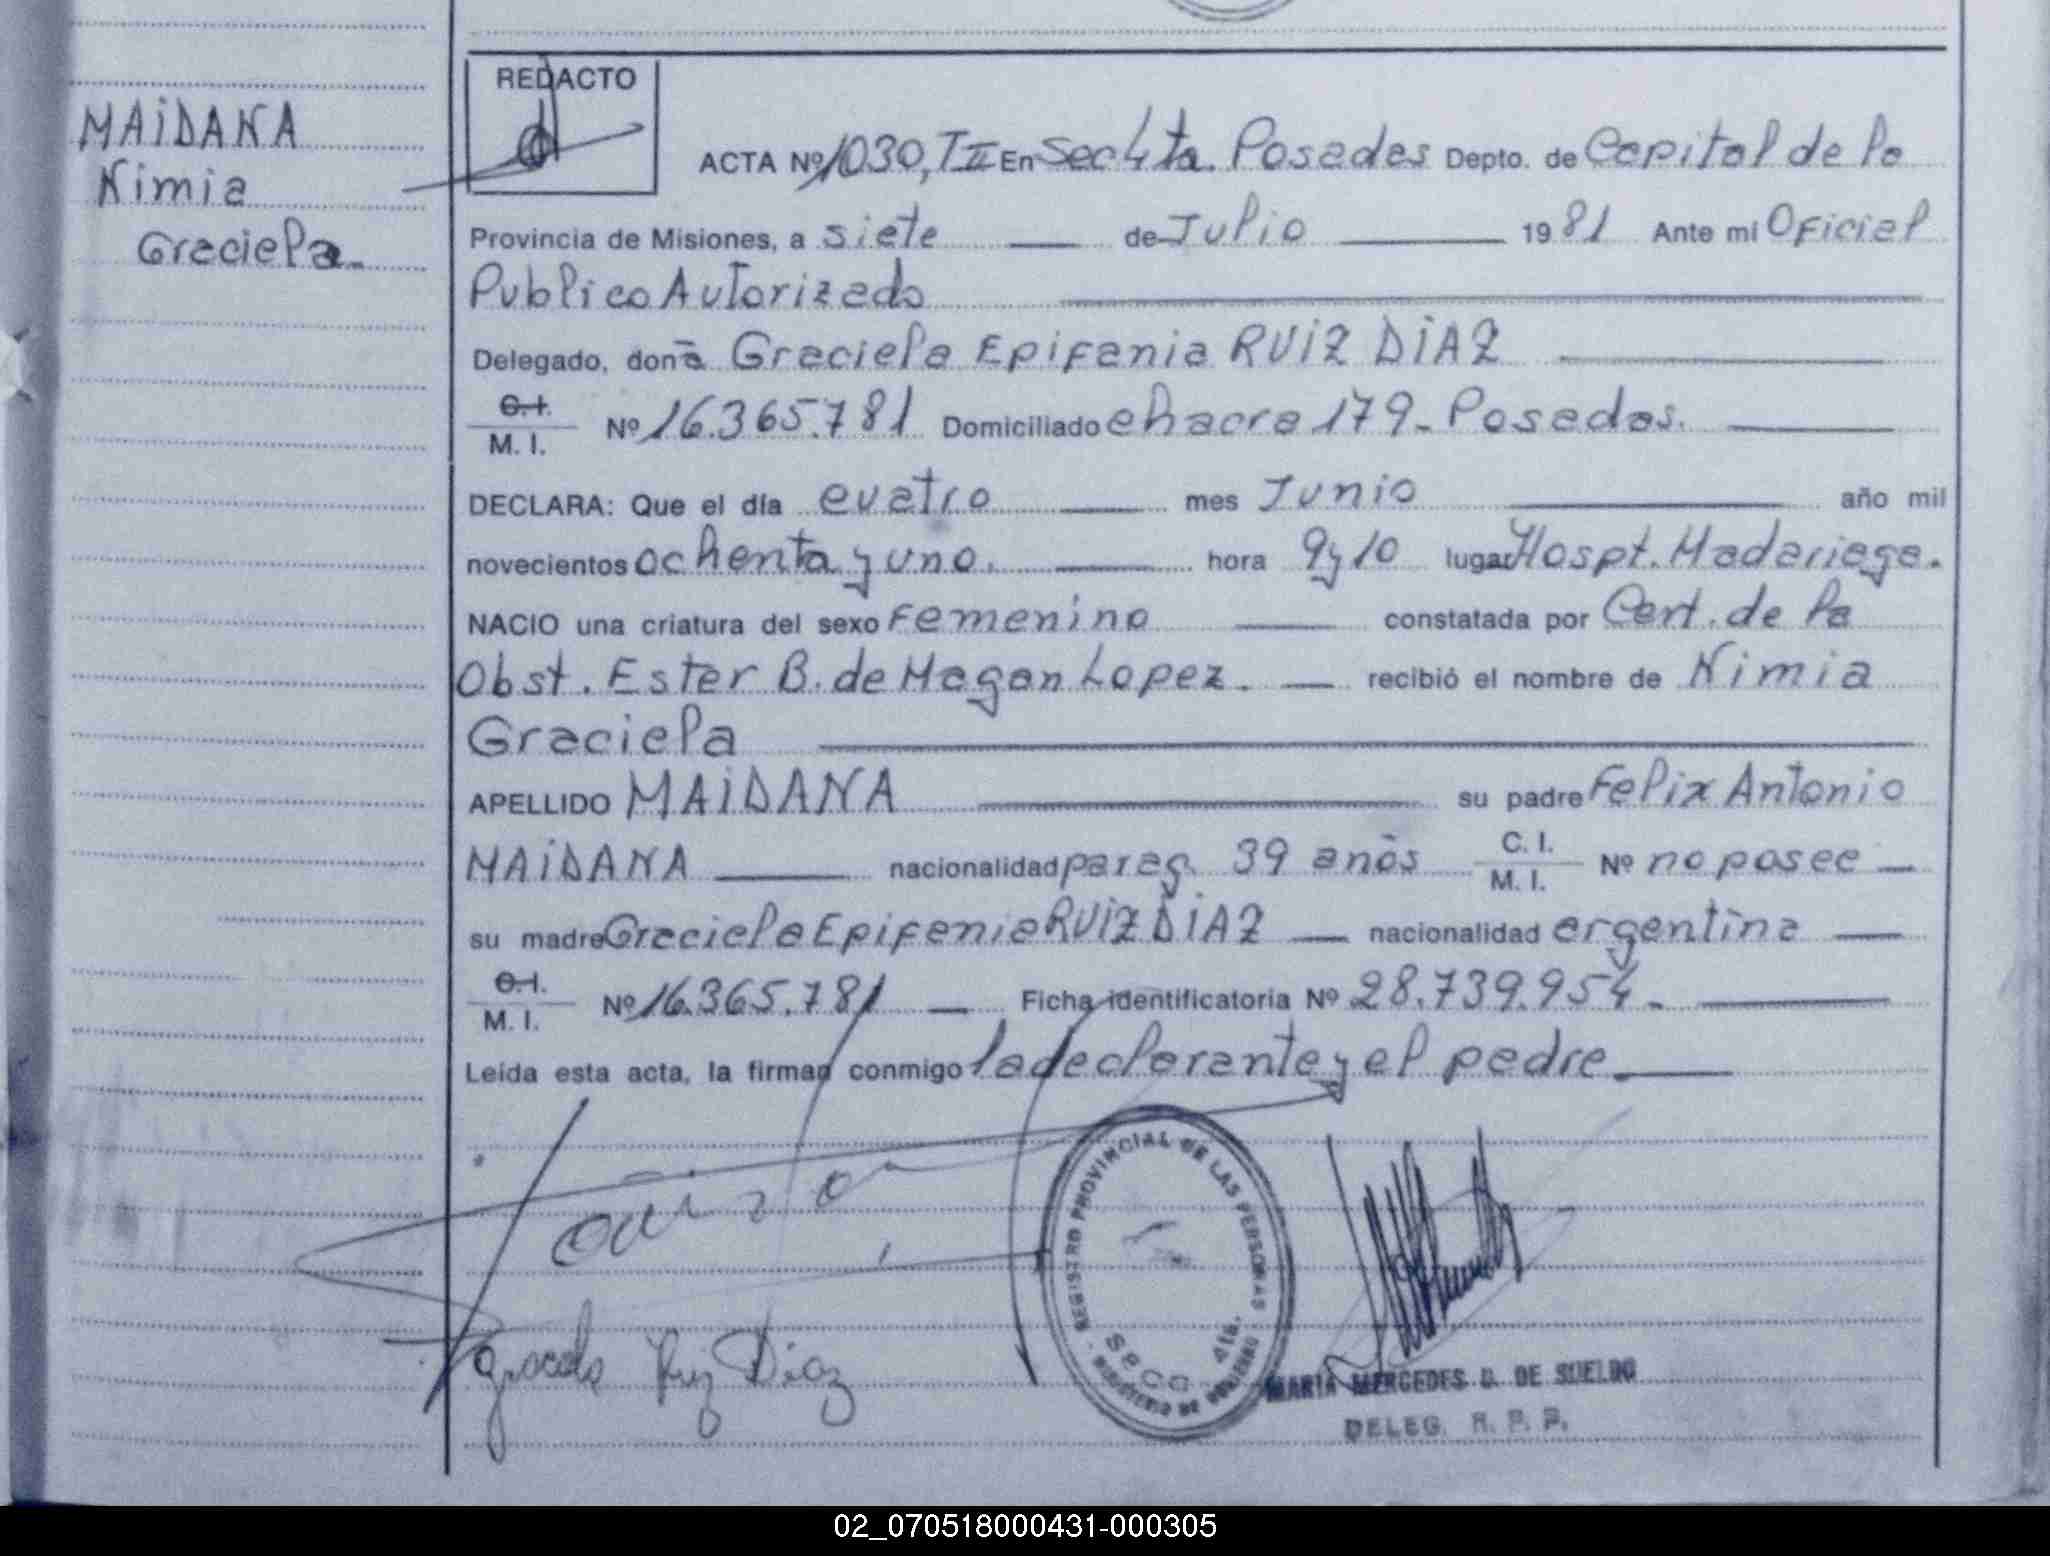 MAIDANA
Nimia
Graciela.
REDACTO
ACTA Nº 1030, T II En Sec 4ta. Posadas Depto. de Capital de la
Provincia de Misiones, a siete de Julio 19 81 Ante mi Oficial
Publico Autorizado
Delegado, don a Graciela Epifania RUIZ DIAZ
C. I.
M. I. Nº 16.365.781 Domiciliado chacra 179 - Posadas.
DECLARA: Que el día cuatro mes Junio año mil
novecientos ochenta y uno. hora 9 y 10 lugar Hospt. Madariaga.
NACIO una criatura del sexo Femenino constatada por Cert. de la
Obst. Ester B. de Magan Lopez. recibió el nombre de Nimia
Graciela
APELLIDO MAIDANA su padre Felix Antonio
MAIDANA nacionalidad parag. 39 años C. I.
M. I. Nº no posee
su madre Graciela Epifania RUIZ DIAZ nacionalidad argentina
C. I.
M. I. Nº 16.365.781 Ficha identificatoria Nº 28.739.954.
Leída esta acta, la firman conmigo la declarante y el padre.
REGISTRO PROVINCIAL DE LAS PERSONAS
Secc 4ta.
Graciela Ruiz Diaz
MARIA MERCEDES D. DE SUELDO
DELEG. R. P. P.
02_070518000431-000305